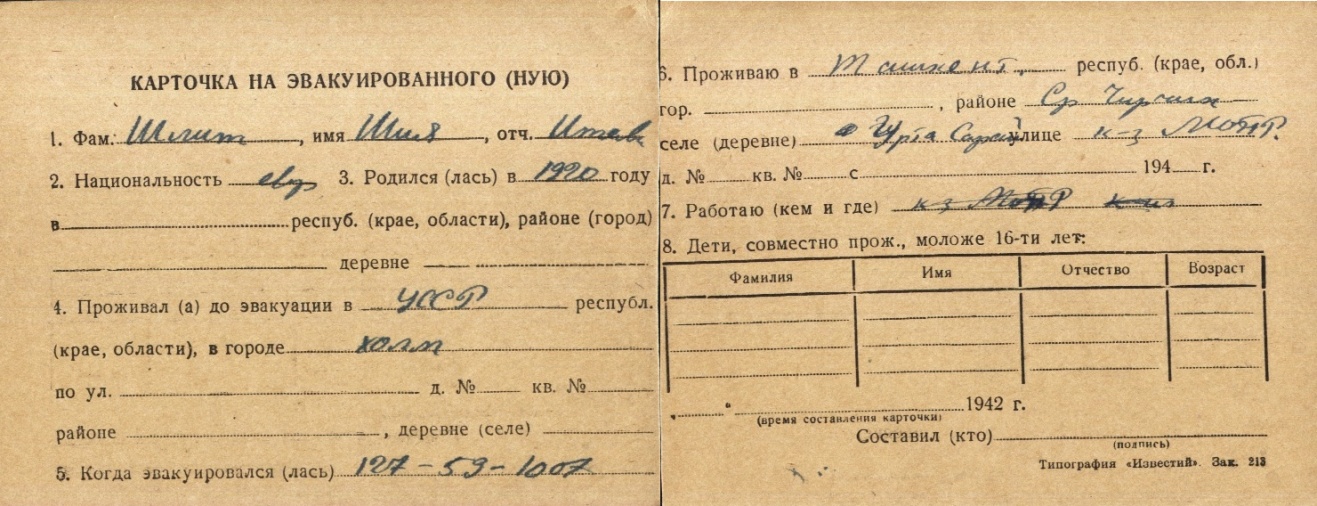 КАРТОЧКА НА ЭВАКУИРОВАННОГО (НУЮ)
1. Фам. Шлит, имя Шия, отч.
2. Национальность евр 3. Родился (лась) в 1920 году
в респуб. (крае, области), районе (город)
деревне
4. Проживал (а) до эвакуации в УССР республ.
(крае, области), в городе холм
по ул. д. № кв. №
районе , деревне (селе)
5. Когда эвакуировался (лась) 127-59-1007
6. Проживаю в Ташкент, респуб. (крае, обл.)
гор. , районе Ср Чирчик
селе (деревне) Урта Сарай улице к-з МОПР.
д. № кв. № с 194 г.
7. Работаю (кем и где) к-з МОПР
8. Дети, совместно прож., моложе 16-ти лет:
Фамилия Имя Отчество Возраст
„ " 1942 г.
(время составления карточки)
Составил (кто)
(подпись)
Типография «Известий». Зак. 213